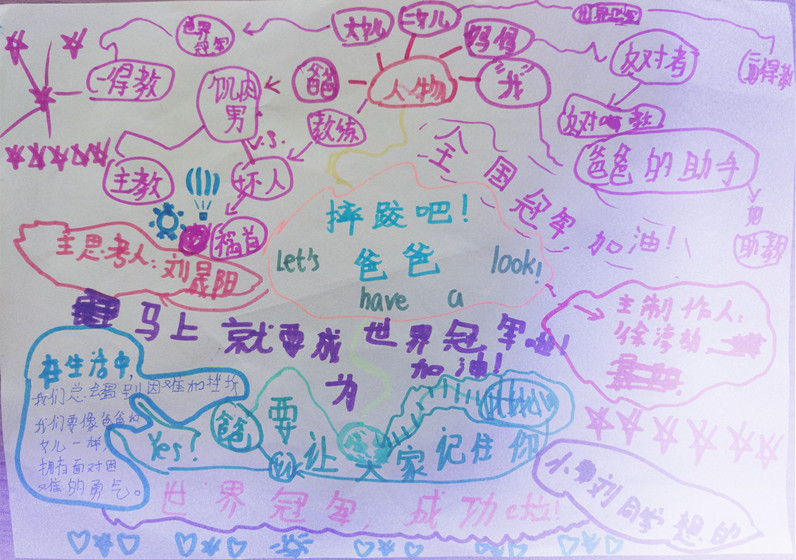 世界冠军
大女儿
二女儿
妈妈
世界冠军
得教
肌肉男
爸爸
人物
"我"
反对者
副得教
教练
反对
V.S.
主教
坏人
祸首
爸爸的助手
助教
全国冠军加油!
主思考人:刘晟阳
摔跤吧!
爸爸
Let's
have a
look!
主制作人:
马上就要成世界冠军啦!
为
加油!
在生活中,
我们总会遇到困难和挫折
我们要像爸爸和
女儿一样,
拥有面对困
难的勇气。
Yes?
爸爸
要让大家记住你
世界冠军,成功啦!
刘同学想的